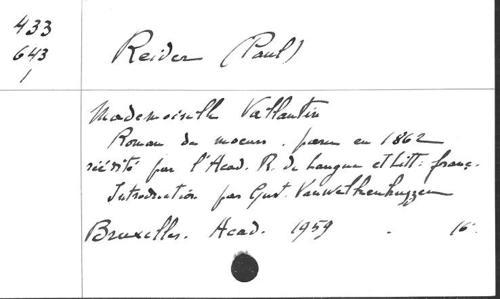 433
643
1
Reider (Paul)
Mademoiselle Vallantin
Roman de moeurs, paru en 1862
réédité par l'Acad. R. de Langue et Litt. franç.
Introduction par Gust. Vanwelkenhuyzen
Bruxelles. Acad. 1959 . 16°